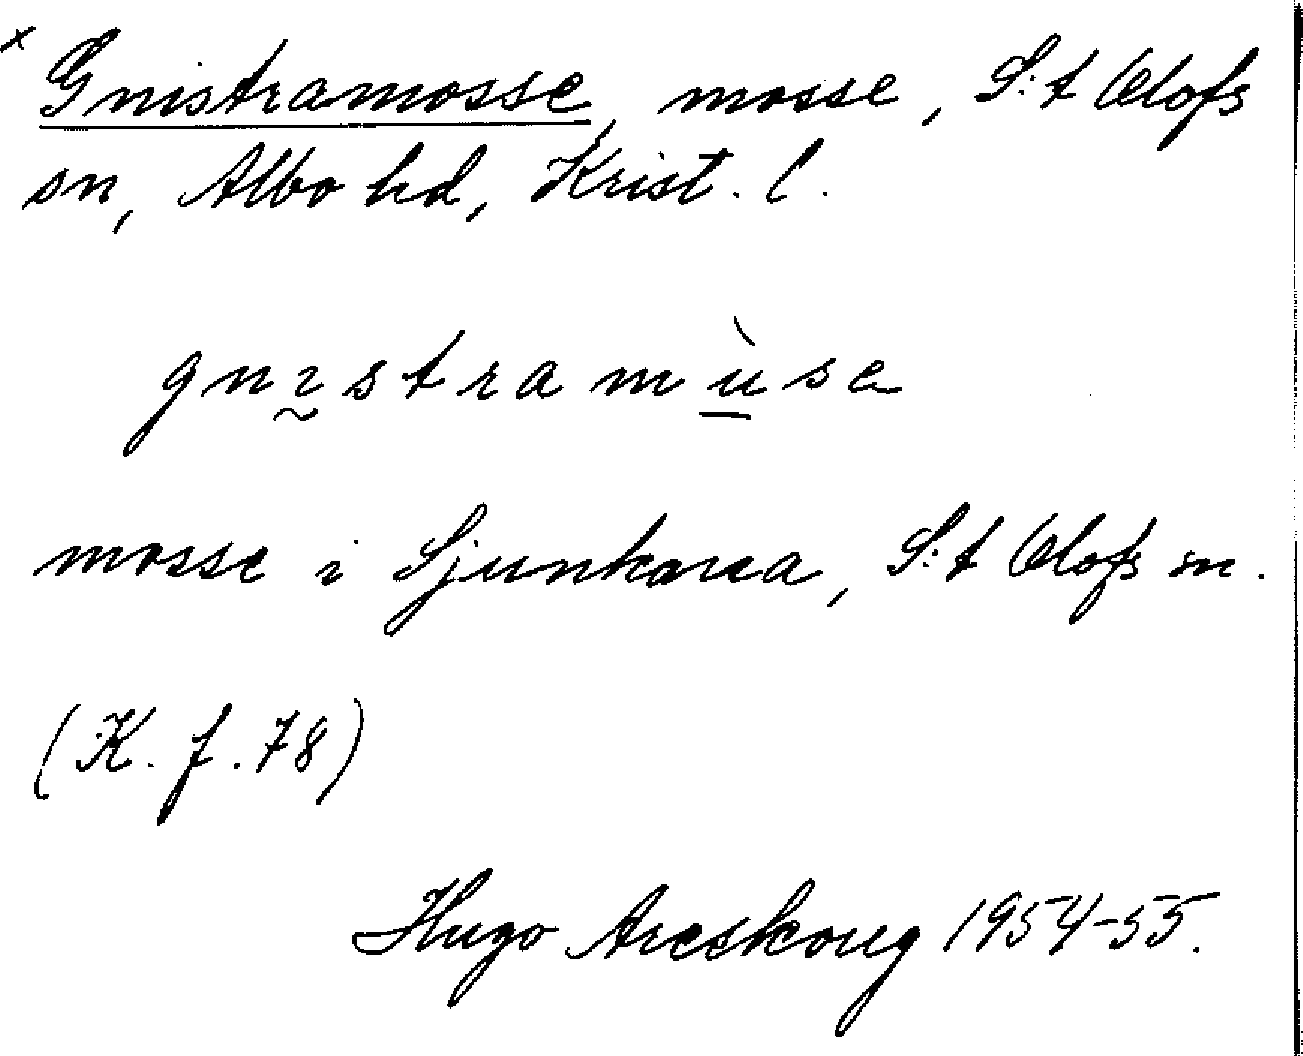 x Gnistramosse, mosse, S:t Olofs
sn, Albo hd, Krist. l.
gnistramùse
mosse i Sjunkarea, S:t Olofs sn.
(K. f. 78)
Hugo Areskoug 1954-55.